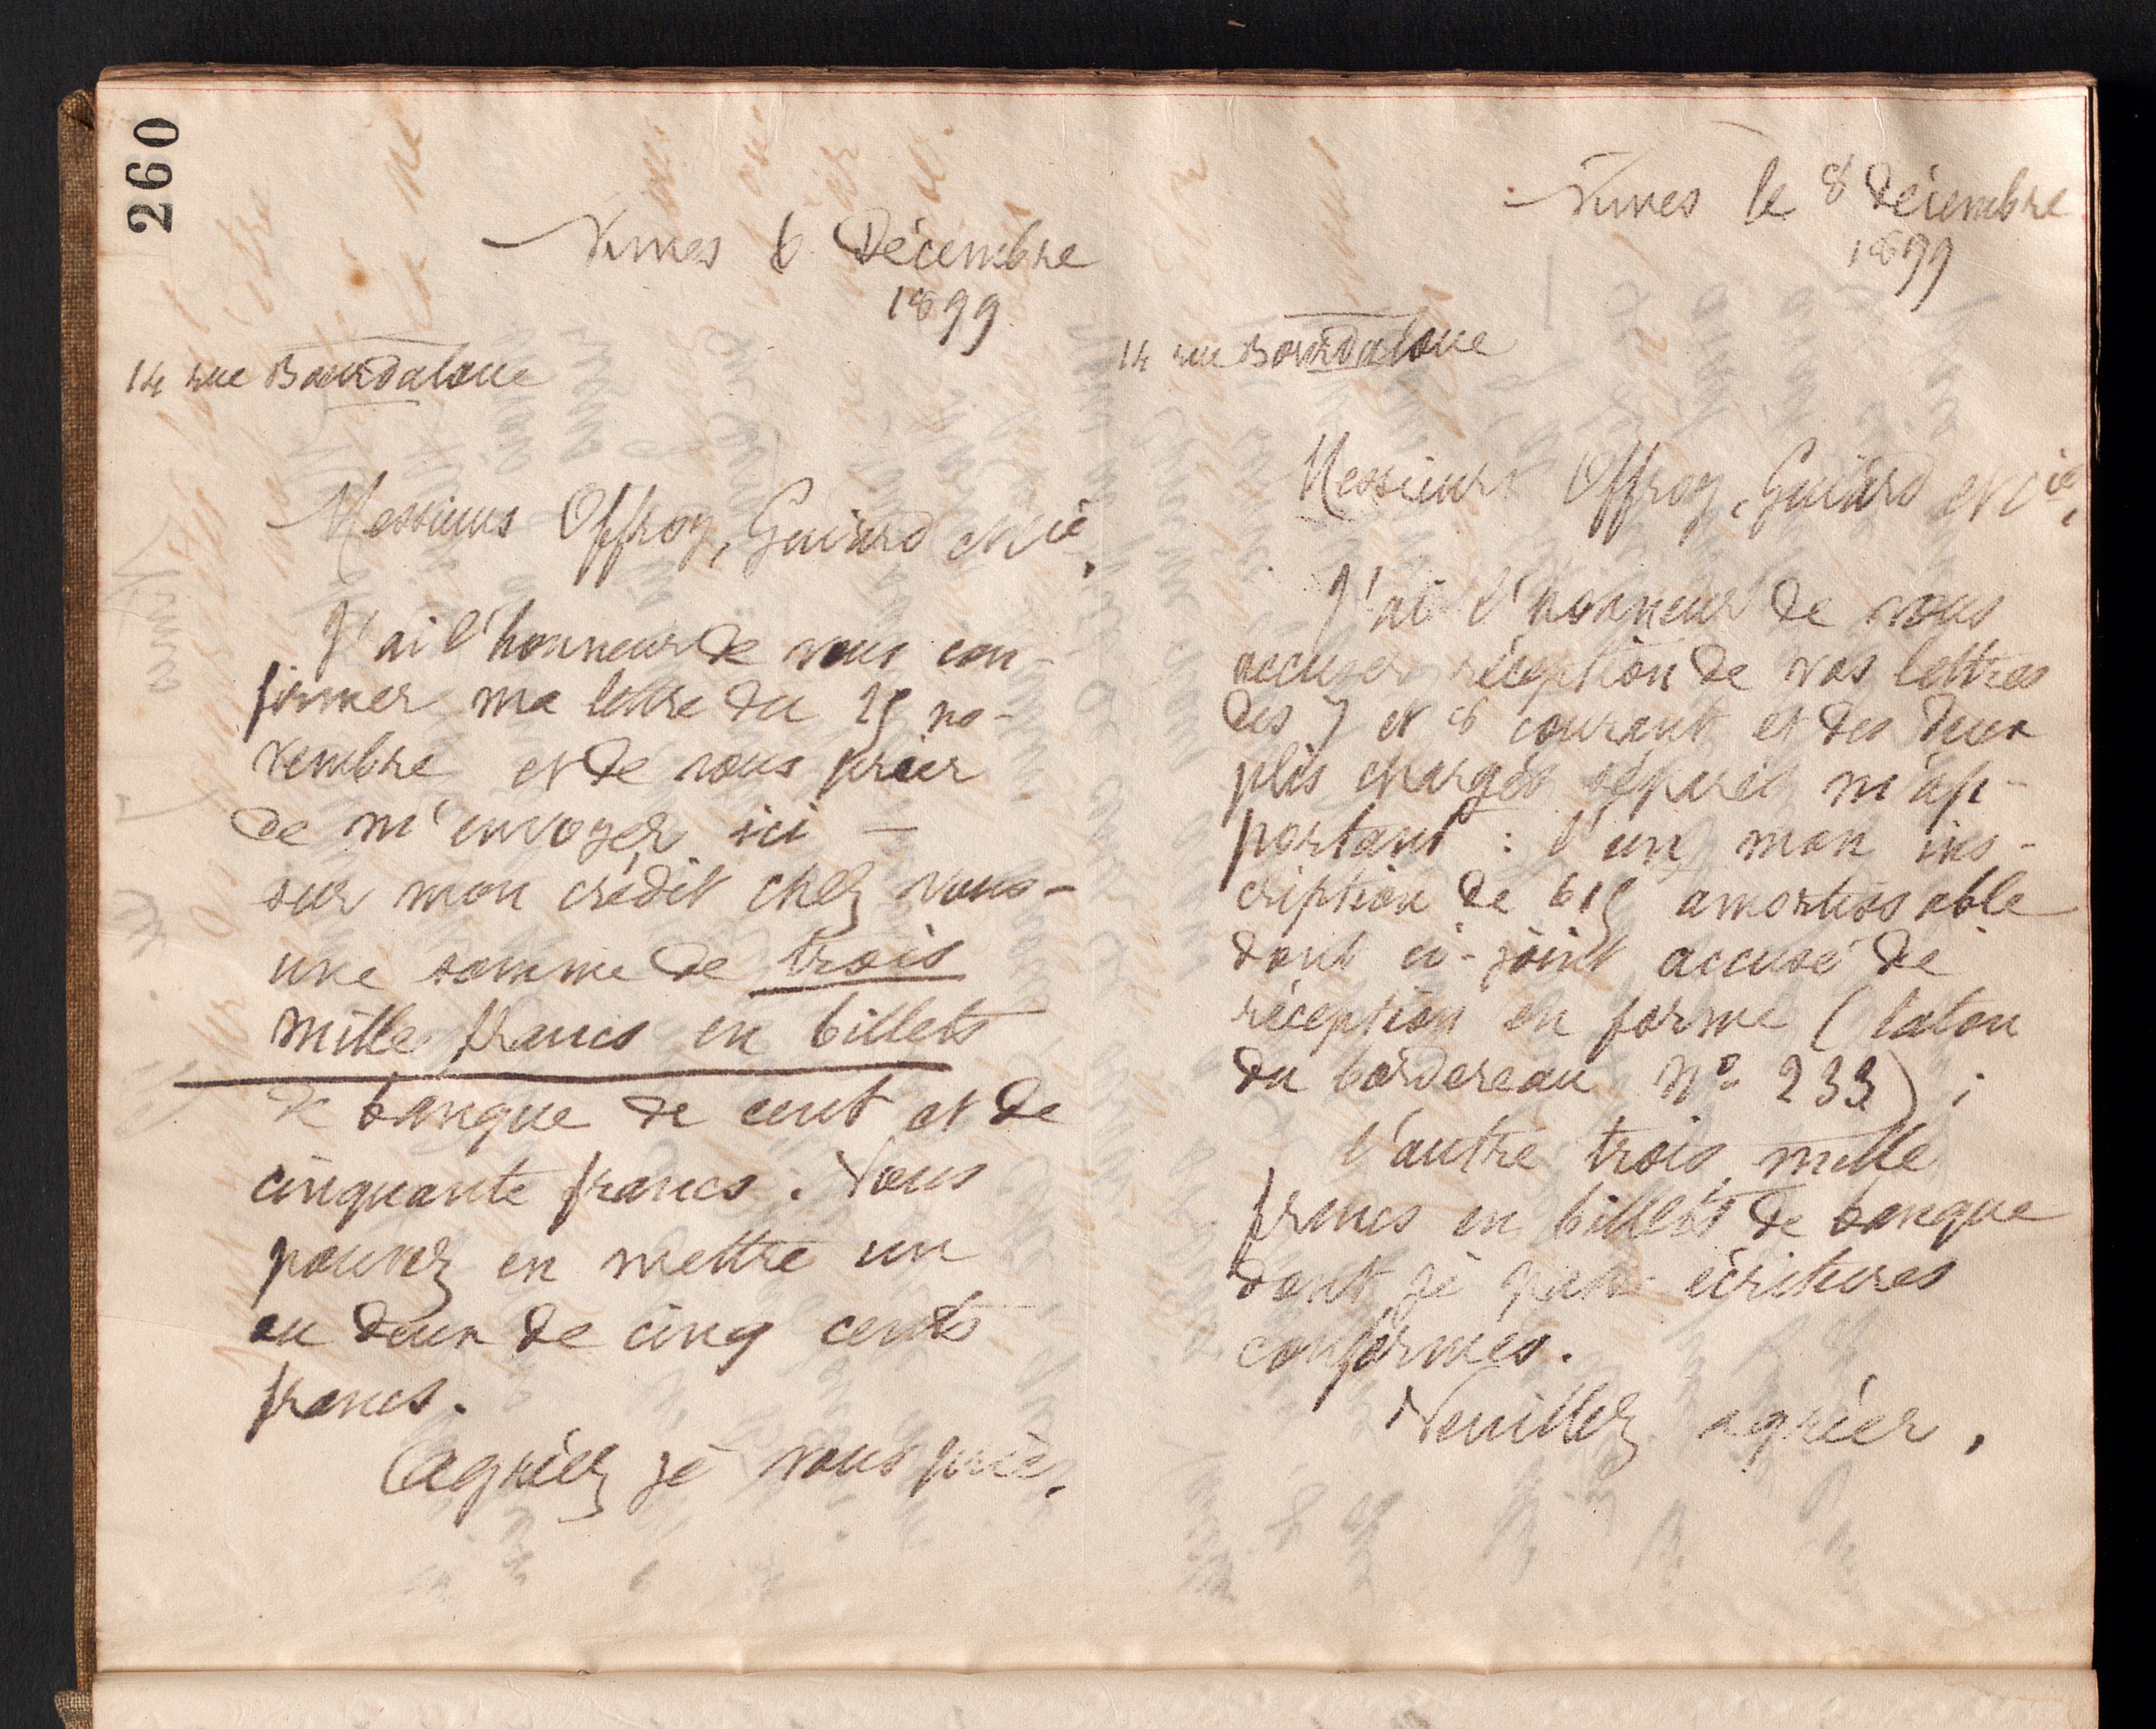 260
Nimes 6 Décembre
1899
14 rue Bourdaloue
Messieurs Offroy, Guiard et Cie,
J'ai l'honneur de vous con-
firmer ma lettre du 25 no-
vembre et de vous prier
de m'envoyer ici —
sur mon crédit chez vous —
une somme de trois
mille francs en billets
de banque de cent et de
cinquante francs. Vous
pouvez en mettre un
ou deux de cinq cents
francs.
Agréez je vous prie,
Nimes le 8 décembre
1899
14 rue Bourdaloue
Messieurs Offroy, Guiard et Cie,
J'ai l'honneur de vous
accuser réception de vos lettres
des 7 et 8 courant et des deux
plis chargés séparés m'ap-
portant : l'un, mon ins-
cription de 615 amortissable
dont ci-joint accusé de
réception en forme (talon
du bordereau No 233) ;
l'autre trois mille
francs en billets de banque
dont je passe écritures
conformes.
Veuillez agréer,